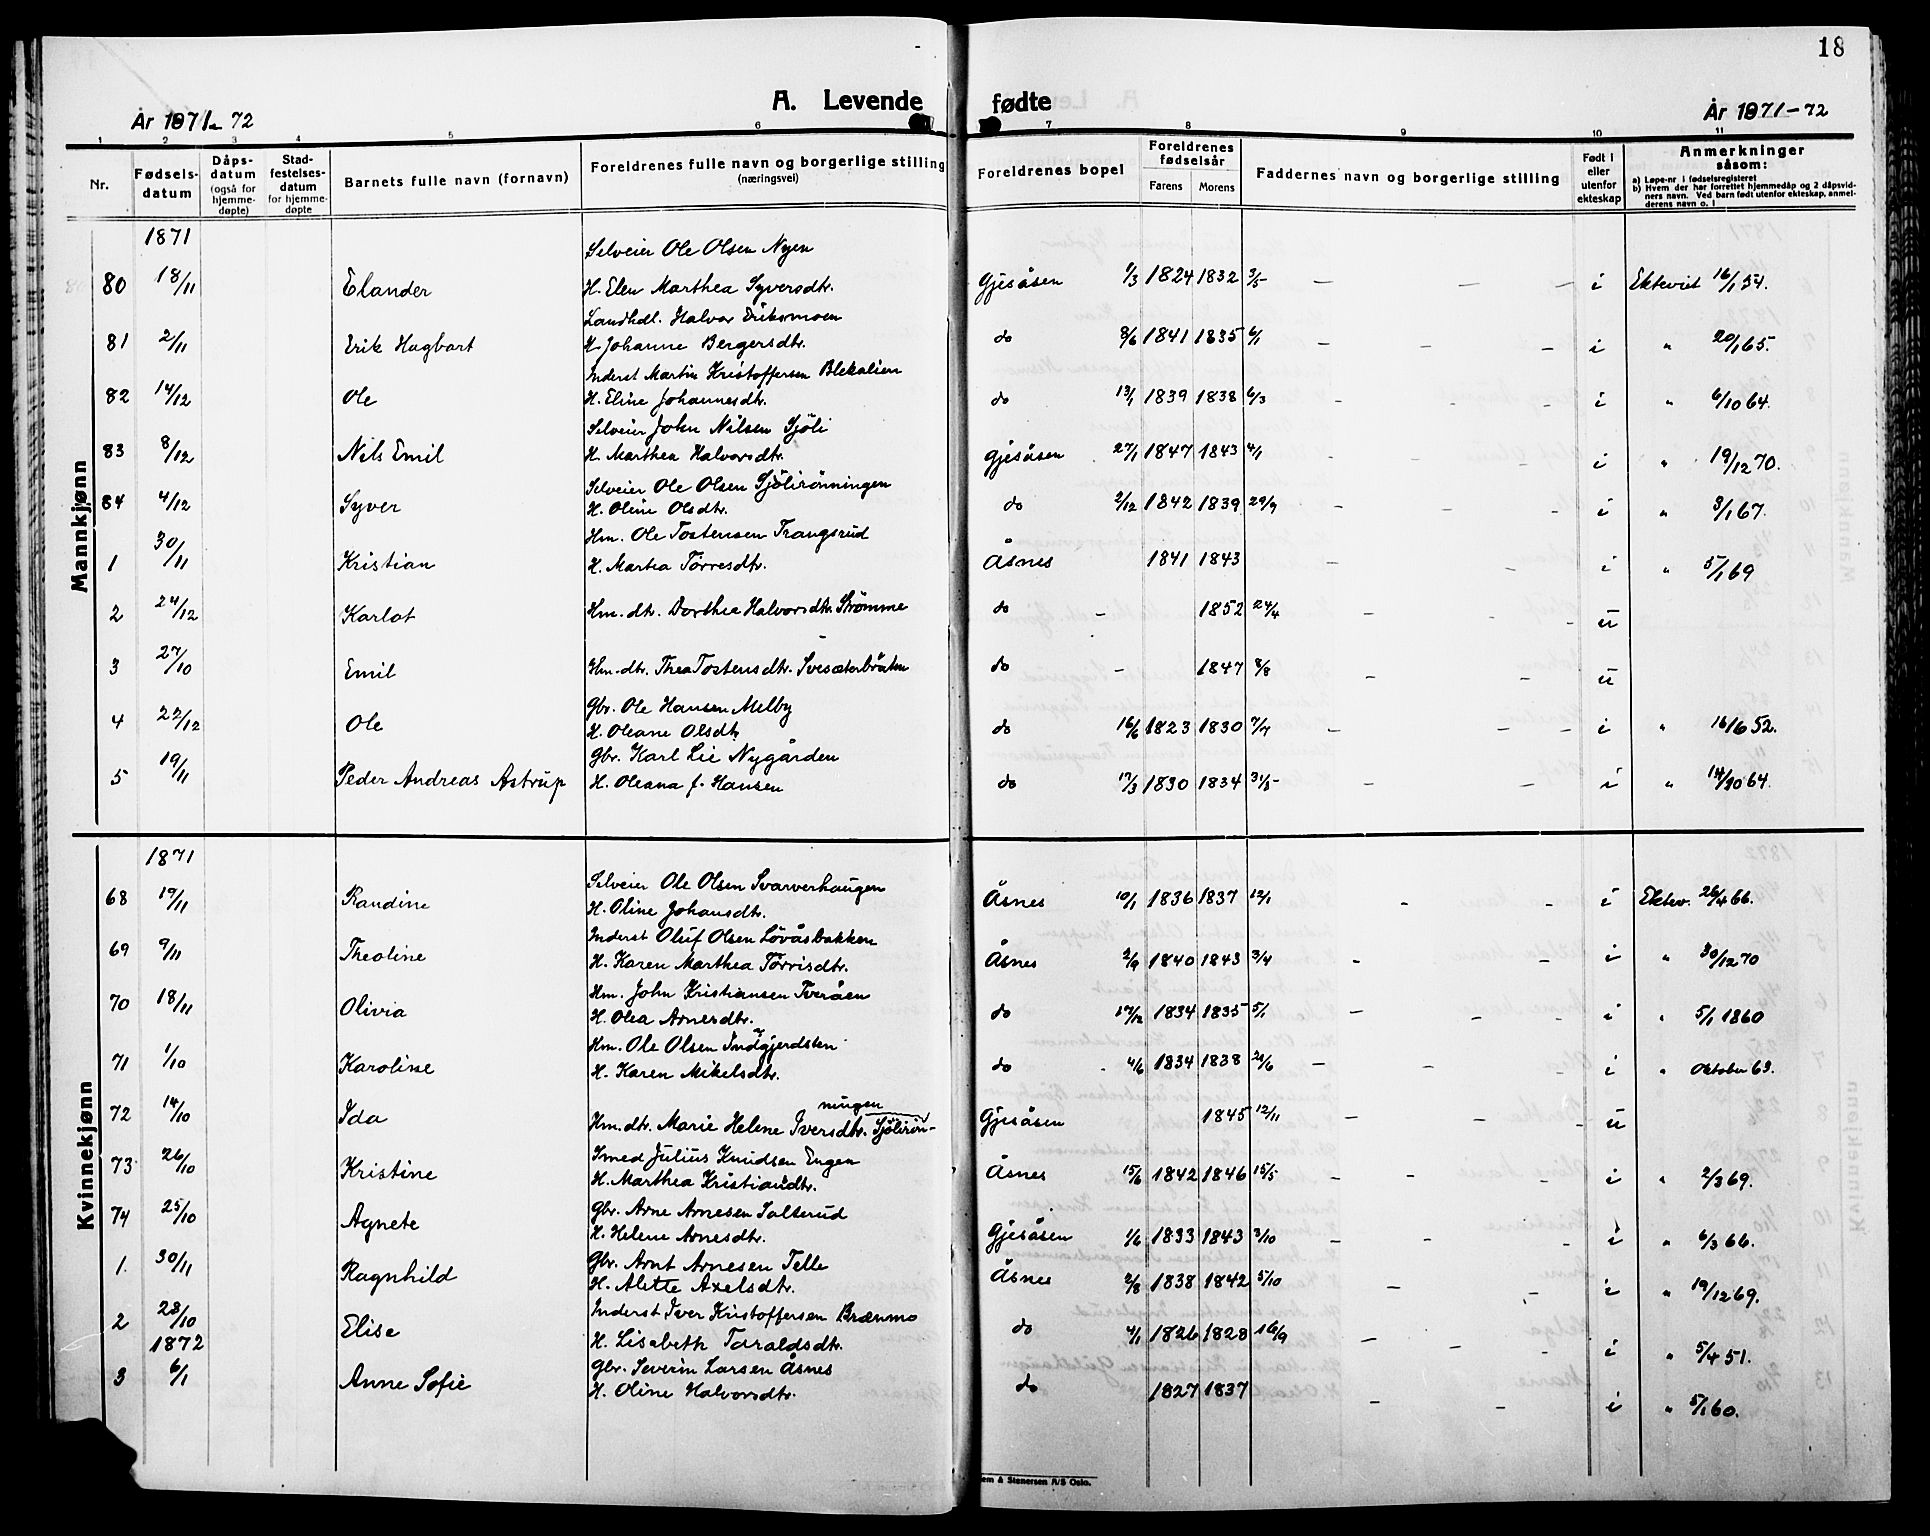 18
A. Levende fødte
År 1871-72
År 1871-72
1 2 3 4 5 6 7 8 9 10 11
Nr.
Fødsels-datum
Dåps-datum (også for hjemme-døpte)
Stad-festelses-datum for hjemme-døpte
Barnets fulle navn (fornavn)
Foreldrenes fulle navn og borgerlige stilling (næringsvei)
Foreldrenes bopel
Foreldrenes fødselsår
Farens Morens
Faddernes navn og borgerlige stilling
Født i eller utenfor ekteskap
Anmerkninger såsom:
a) Løpe-nr i fødselsregisteret
b) Hvem der har forrettet hjemmedåp og 2 dåpsvidners navn. Ved barn født utenfor ekteskap, anmelderens navn o. l
Mannkjønn
1871
Selveier Ole Olsen Nyen
80 18/11 Elander H. Elen Marthea Syversdtr. Gjesåsen 1/3 1824 1832 3/5 - - - i Ekteviet 16/1 54.
Landhdl. Halvor Eriksmoen
81 2/11 Erik Hagbart H. Johanne Bergersdtr. do 8/6 1841 1835 6/1 - - - i " 20/1 65.
Inderst Martin Kristoffersen Blekalien
82 14/12 Ole H. Eline Johannesdtr. do 13/1 1839 1838 6/3 - - - i " 6/10 64.
Selveier John Nilsen Sjöli
83 8/12 Nils Emil H. Marthea Halvorsdtr. Gjesåsen 27/1 1847 1843 4/1 i " 19/12 70.
Selveier Ole Olsen Sjölirönningen
84 4/12 Syver H. Oline Olsdtr. do 2/12 1842 1839 29/9 - - - i " 3/1 67.
Hm. Ole Tostensen Trangsrud
1 30/11 Kristian H. Martea Törresdtr. Åsnes 1841 1843 - - i " 5/1 69
2 24/12 Karlot Hm. dtr. Dorthea Halvorsdtr. Strömme do - 1852 24/4 - - - u
3 27/10 Emil Hm. dtr. Thea Tostensdtr. Svesæterbråten do - 1847 8/8 - - u
Gbr. Ole Hansen Melby
4 22/12 Ole H. Oleane Olsdtr. do 16/6 1823 1830 7/7 - - - i " 16/6 52.
Gbr. Karl Lie Nygården
5 19/11 Peder Andreas Astrup H. Oleana f. Hansen do 17/3 1830 1834 31/5 - - i " 14/20 64.
Kvinnekjønn
1871
Selveier Ole Olsen Svarverhaugen
68 19/11 Randine H. Oline Johansdtr. Åsnes 10/1 1836 1837 12/1 - - i Ektev. 26/4 66.
Inderst Oluf Olsen Lövåsbakken
69 9/11 Theoline H. Karen Marthea Törrisdtr. Åsnes 2/9 1840 1843 3/4 - - i " 30/12 70
Hm. John Kristiansen Tveråen
70 18/11 Olivia H. Olea Arnesdtr. do 17/12 1834 1835 5/1 - - - i " 5/1 1860
Hm. Ole Olsen Indgjerdsten
71 1/10 Karoline H. Karen Mikelsdtr. do 4/6 1834 1838 20/6 - - - i " Oktober 63.
ningen
72 14/10 Ida Hm. dtr. Marie Helene Iversdtr. Sjölirön- Gjesåsen 1845 12/11 - - - u
Smed Julius Knudsen Engen
73 26/10 Kristine H. Marthea Kristiandtr. Åsnes 15/6 1842 1846 15/5 - - - i " 2/3 69.
Gbr. Arne Arnesen Salterud
74 25/10 Agnete H. Helene Arnesdtr. Gjesåsen 1/6 1833 1843 3/10 - - - i " 6/3 66.
Gbr. Arnt Arnesen Telle
1. 30/11 Ragnhild H. Alette Axelsdtr. Åsnes 2/8 1838 1842 5/10 - - i " 19/12 69.
Inderst Iver Kristoffersen Brænmo
2 23/10 Elise H. Lisabeth Taraldsdtr. do 4/1 1826 1828 16/9 - - - i " 5/4 51.
1872
Gbr. Severin Larsen Åsnes
3 6/1 Anne Sofie H. Oline Halvorsdtr. do 1827 1837 - - i " 5/1 60.
em & Stenersen A/S Oslo.